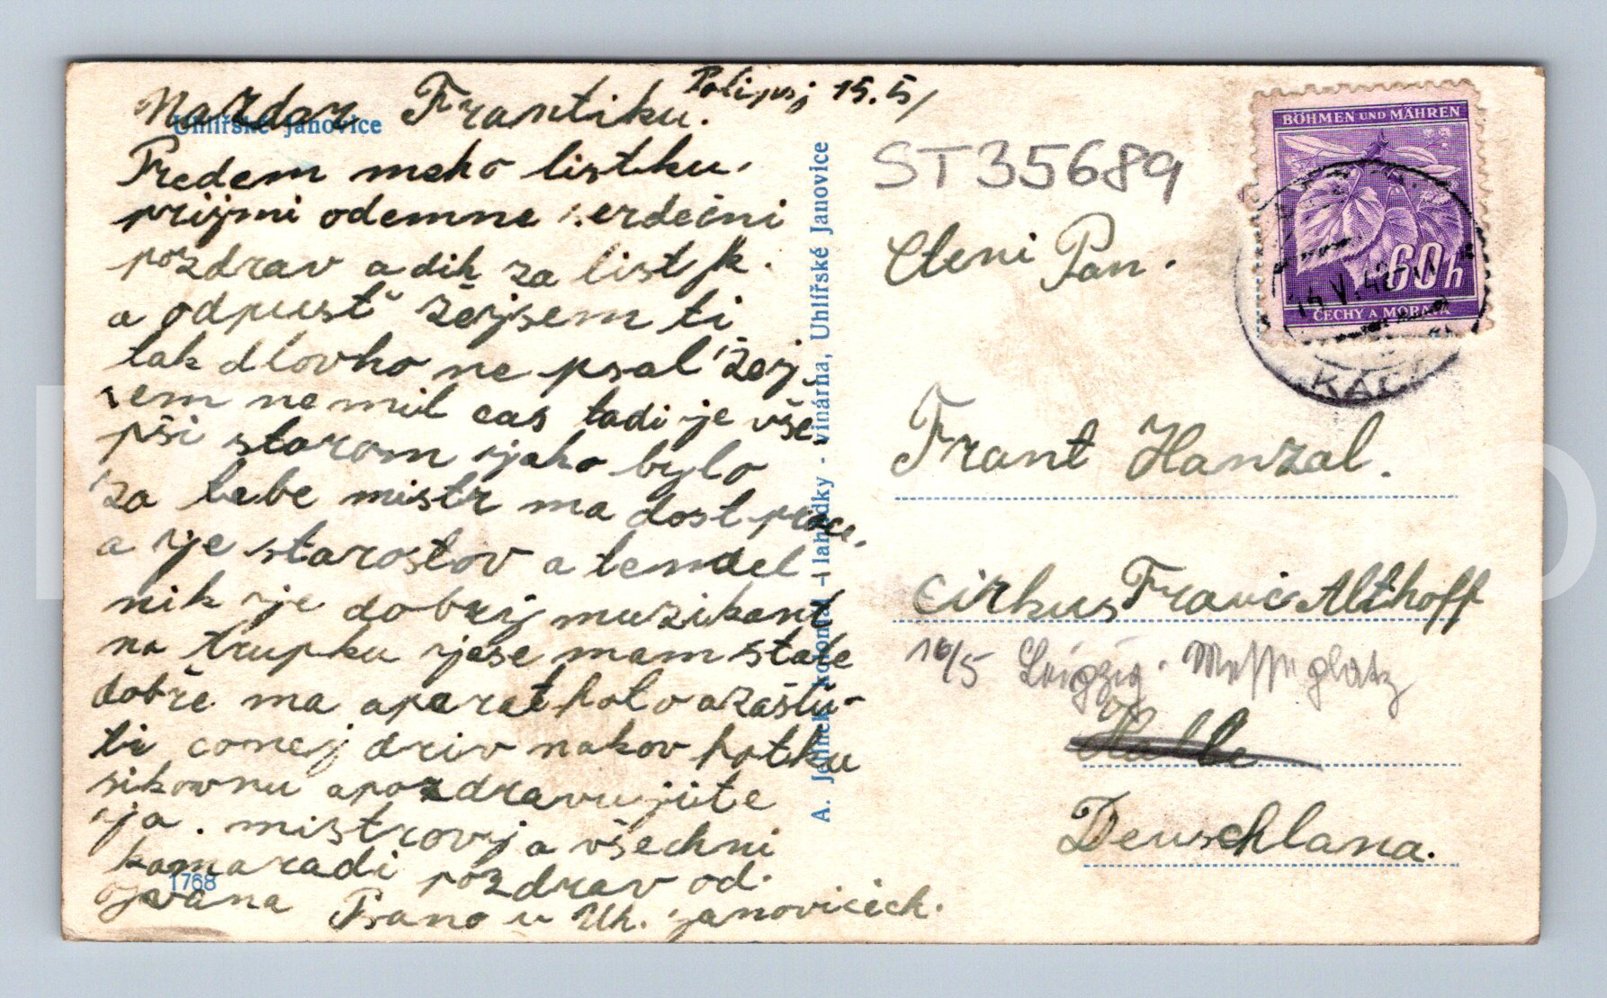 Nazdar Frantíku.
15. 5/
Uhlířské Janovice
Předem meho listku.
přijmi odemne serdečni
pozdrav a dik za listek.
a odpusť žejsem ti
tak dlovho ne psal žej
sem nemnil cas tadi je vše
při starom jako bylo
za tebe mistr ma dost prace.
a je starostov a ten del-
nik je dobrij muzikant
na trupku jese mam stale
dobře ma aparet foto a zašlu-
ti comej driv nakov fotku
sikovnu a pozdravujite
ja. mistrovj a všechni
kamaradi pozdrav od.
1768
Psano u Uh. janovicéch.
A. Jelínek, koloniál - lahůdky - vinárna, Uhlířské Janovice
ST35689
BÖHMEN UND MÄHREN
60h
ČECHY A MORAVA
KÁC
Cteni Pan.
Frant Hanzal.
Cirkus Franc Althoff
10/5 Leipzig. Messeplatz
Halle
Deuschland.